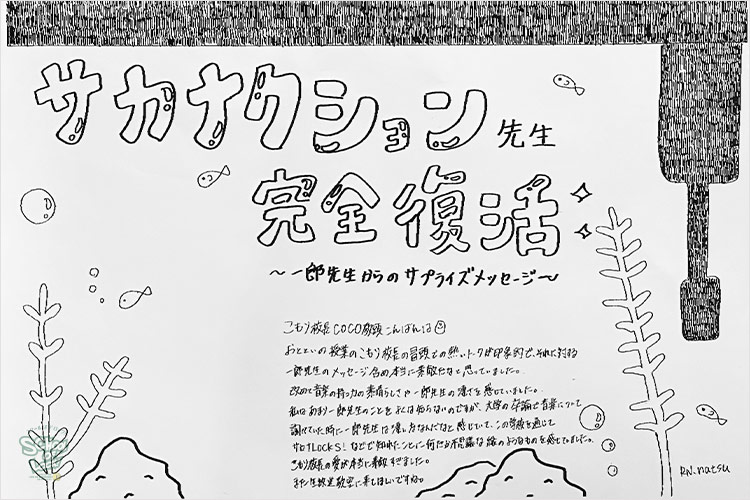 サカナクション先生
完全復活
〜一郎先生からのサプライズメッセージ〜
こもり校長COCO教頭こんばんは
おとといの授業のこもり校長の冒頭での熱いトークが印象的で、それに対する
一郎先生のメッセージ含め本当に素敵だなと思っていました。
改めて音楽の持つ力の素晴らしさや一郎先生の凄さを感じていました。
私はあまり一郎先生のことをよくは知らないのですが、大学の卒論で音楽について
調べていた時に一郎先生は凄い方なんだなと感じていて、この学校を通じて
サカナLOCKS!などで知れたことに何だか不思議な縁のようなものを感じてました。
こもり校長の愛が本当に素敵すぎました。
また生放送教室に来てほしいですね。
RN.natsu